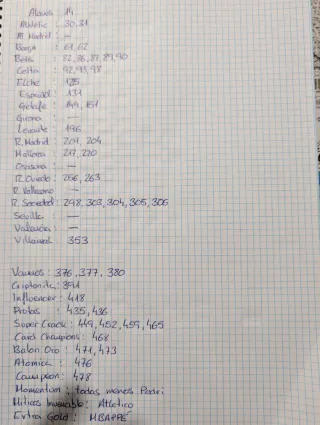 Alavés : 14
Athletic : 30, 31
At. Madrid : —
Barça : 61, 62
Betis : 82, 86, 87, 89, 90
Celta : 92, 93, 98
Elche : 125
Espanyol : 131
Getafe : 149, 151
Girona : —
Levante : 196
R. Madrid : 201, 204
Mallorca : 217, 220
Osasuna : —
R. Oviedo : 256, 263
R. Vallecano : —
R. Sociedad : 298, 303, 304, 305, 306
Sevilla : —
Valencia : —
Villareal : 353
Vamos : 376, 377, 380
Criptonita : 391
Influencer : 418
Protas : 435, 436
Super Crack : 449, 452, 459, 465
Card Champions : 468
Balon Oro : 471, 473
Atomica : 476
Campeon : 478
Momentum : todas menos Pedri
Míticos Invencible : Atletico
Extra Gold : MBAPPÉ